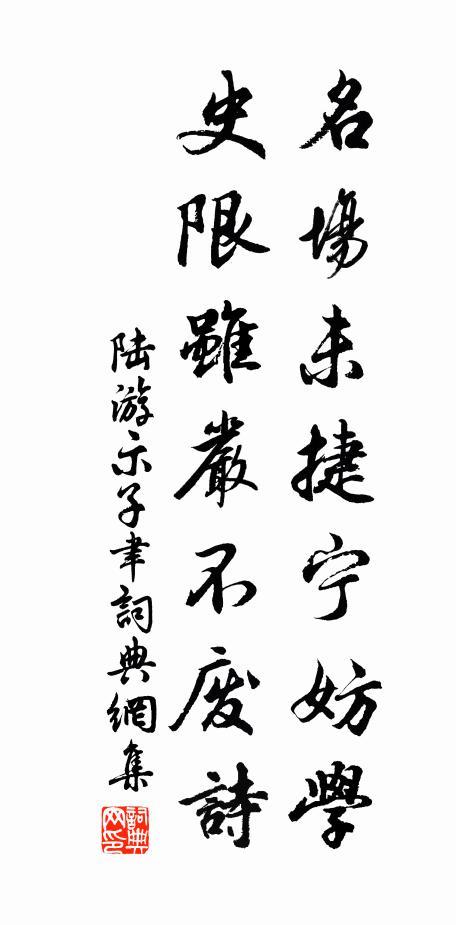 名場未捷宁妨學
史限雖嚴不廢詩
陆游示子聿詞典網集
詞典网印